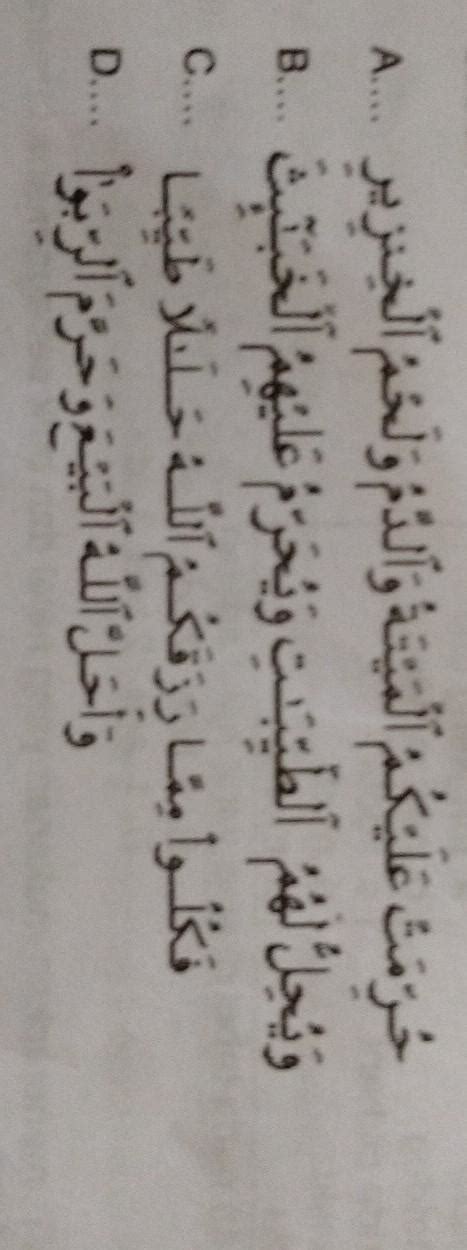 A.... حُرِّمَتْ عَلَيْكُمُ ٱلْمَيْتَةُ وَٱلدَّمُ وَلَحْمُ ٱلْخِنزِيرِ
B.... وَيُحِلُّ لَهُمُ ٱلطَّيِّبَٰتِ وَيُحَرِّمُ عَلَيْهِمُ ٱلْخَبَٰٓئِثَ
C.... فَكُلُوا۟ مِمَّا رَزَقَكُمُ ٱللَّهُ حَلَٰلًا طَيِّبًا
D.... وَأَحَلَّ ٱللَّهُ ٱلْبَيْعَ وَحَرَّمَ ٱلرِّبَوٰا۟